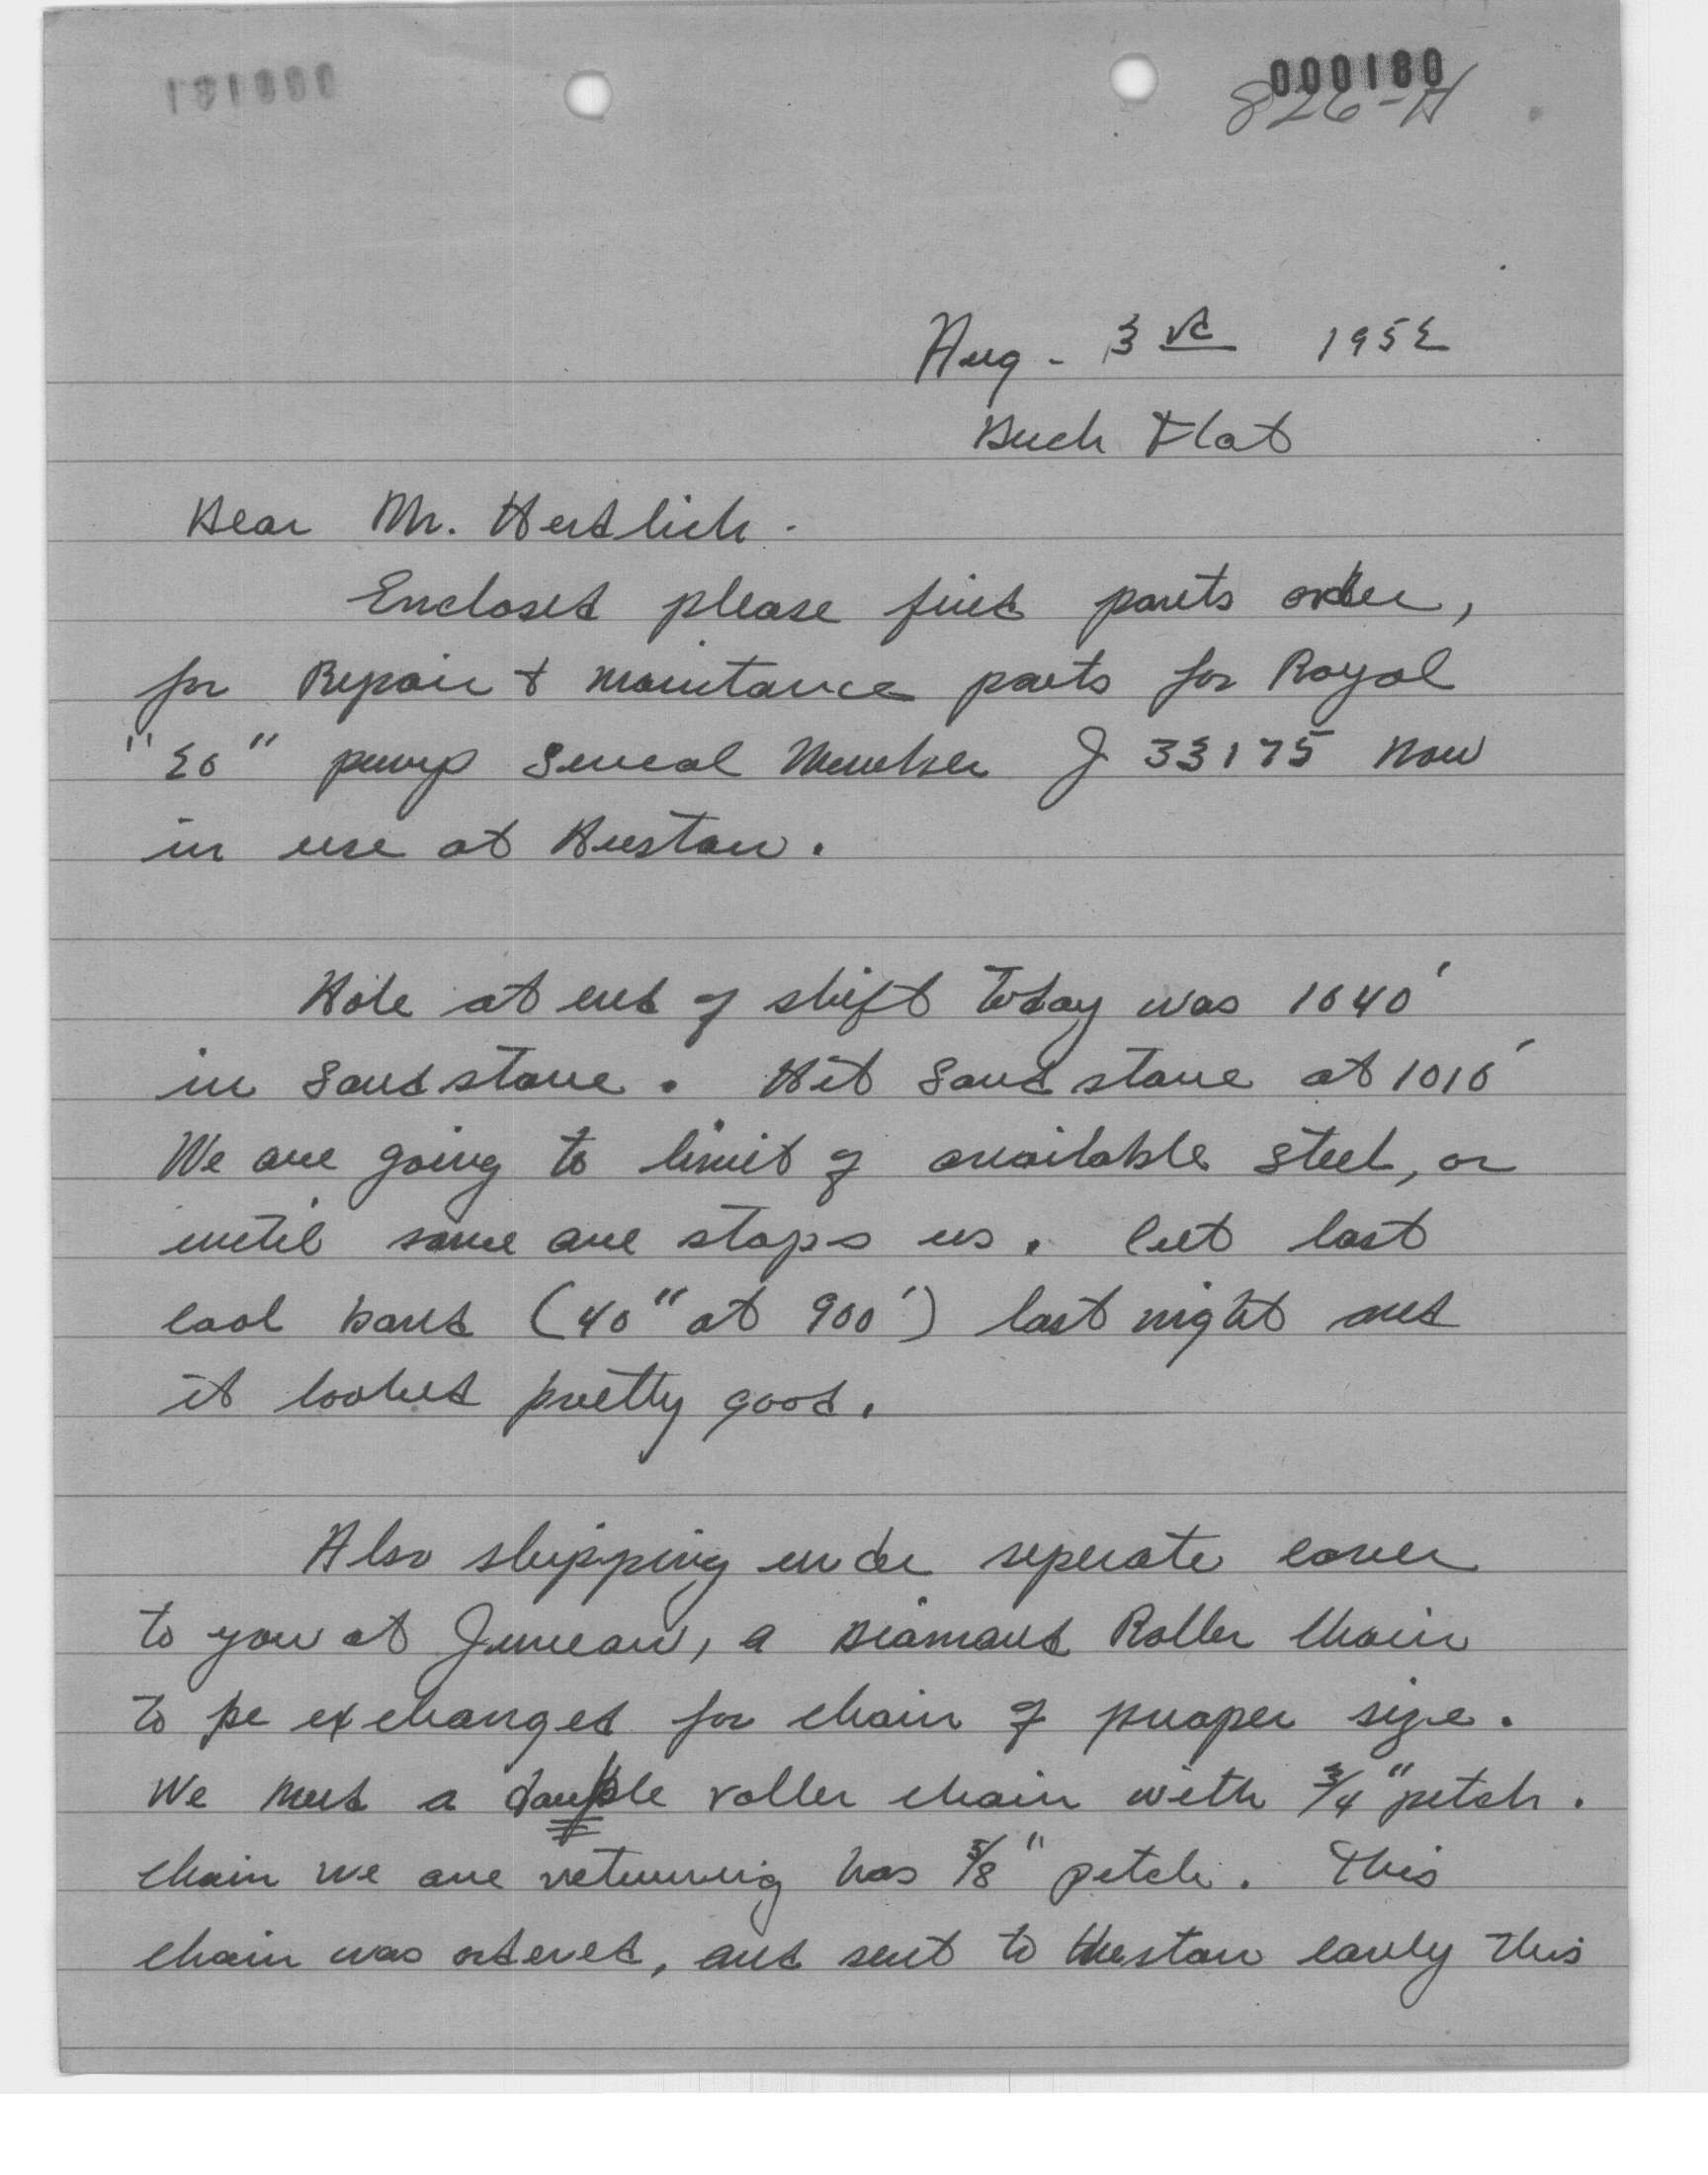 000180
826-H
Aug - 3rd 1952
Buck Flat
Dear Mr. Herdlick.
Enclosed please find parts order,
for Repair & maintance parts for Royal
"20" pump Serial Number J 33175 now
in use at Houston.
Hole at end of shift today was 1040'
in sandstone. Hit sandstone at 1010'
We are going to limit of available steel, or
until some one stops us. Cut last
coal band (40" at 900') last night and
it looked pretty good.
Also shipping under seperate cover
to you at Juneau, a Diamond Roller Chain
to be exchanged for chain of proper size.
We need a double roller chain with 3/4" pitch.
Chain we are returning has 5/8" pitch. This
chain was ordered, and sent to Houston early this